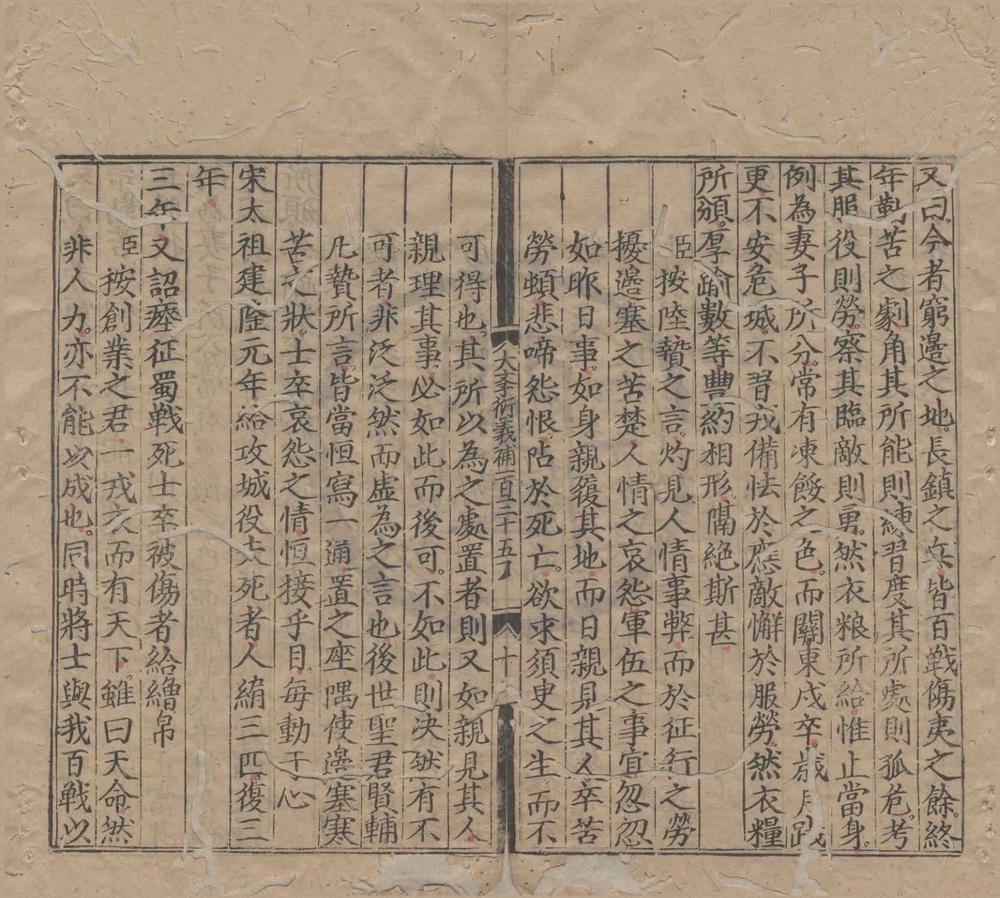 又曰今者窮邊之地長鎮之兵皆百戰傷夷之餘終
年勤苦之劇角其所能則練習度其所處則孤危考
其服役則勞察其臨敵則勇然衣粮所給惟止當身
例為妻子所分常有凍餒之色而關東戍卒歲月踐
更不安危城不習戎備怯於應敵懈於服勞然衣糧
所頒厚踰數等豐約相形隔絕斯甚
臣按陸贄之言灼見人情事弊而於征行之勞
擾邊塞之苦楚人情之哀怨軍伍之事宜忽忽
如昨日事如身親履其地而日親見其人卒苦
勞頓悲啼怨恨阽於死亡欲求須臾之生而不
大學衍義補一百二十五 十
可得也其所以為之處置者則又如親見其人
親理其事必如此而後可不如此則决然有不
可者非泛泛然而虛為之言也後世聖君賢輔
凡贄所言皆當恒寫一通置之座隅使邊塞寒
苦之狀士卒哀怨之情恒接乎目每動于心
宋太祖建隆元年給攻城役夫死者人絹三匹復三
年
三年又詔瘞征蜀戰死士卒被傷者給繒帛
臣按創業之君一戎衣而有天下雖曰天命然
非人力亦不能以成也同時將士與我百戰以